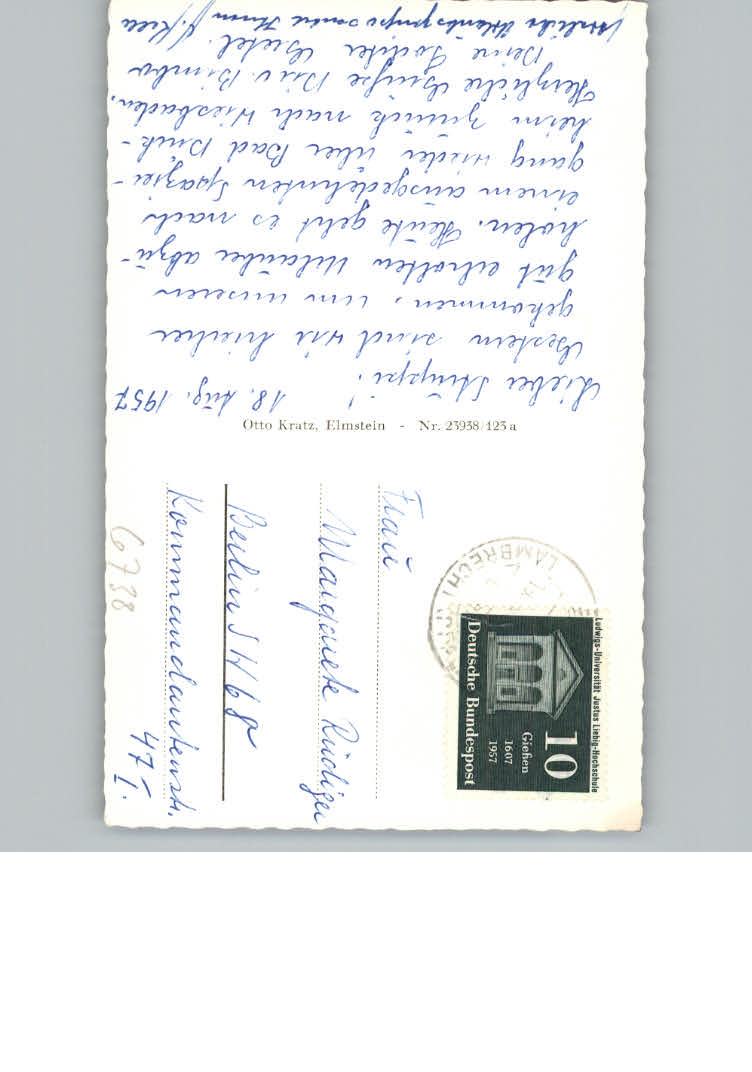 18. Aug. 1957
Lieber Struppi!
Gestern sind wir hierher
gekommen, um unseren
gut erholten Urlauber abzu-
holen. Heute geht es nach
einem ausgedehnten Spazier-
gang wieder über Bad Dürk-
heim zurück nach Wiesbaden.
Herzliche Grüße Dir u. Bimbo
Deine Tochter Gretel.
Herzliche Urlaubsgrüße sendet Ihnen
Otto Kratz, Elmstein - Nr. 23938/123a
Frau
Margarete Rüdiger
Berlin SW 68
Kommandantenstr.
47 I.
6738
LAMBRECHT
Ludwigs-Universität Justus Liebig-Hochschule
10
Gießen
1607
1957
Deutsche Bundespost